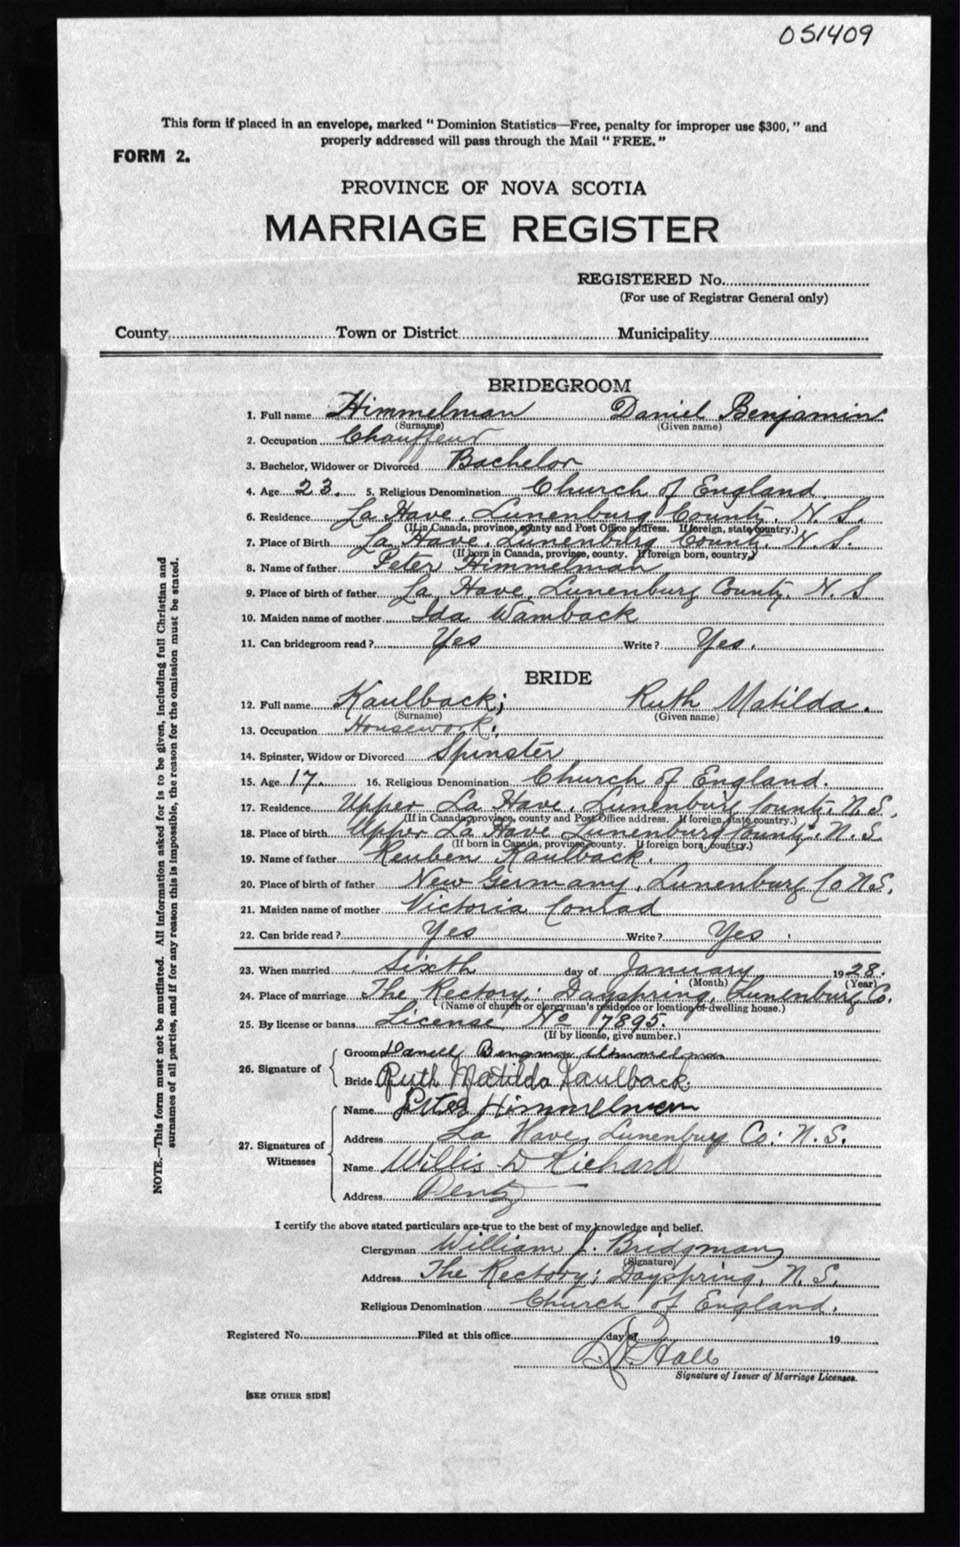 051409
This form if placed in an envelope, marked "Dominion Statistics—Free, penalty for improper use $300," and
properly addressed will pass through the Mail "FREE."
FORM 2.
PROVINCE OF NOVA SCOTIA
MARRIAGE REGISTER
REGISTERED No.
(For use of Registrar General only)
County Town or District Municipality
BRIDEGROOM
1. Full name Himmelman Daniel Benjamin
(Surname) (Given name)
2. Occupation Chauffeur
3. Bachelor, Widower or Divorced Bachelor
4. Age 23. 5. Religious Denomination Church of England
6. Residence La Have, Lunenburg County, N.S.
(If in Canada, province, county and Post Office address. If foreign, state country.)
7. Place of Birth La Have, Lunenburg County. N.S.
(If born in Canada, province, county. If foreign born, country.)
8. Name of father Peter Himmelman
9. Place of birth of father La Have, Lunenburg County. N.S
10. Maiden name of mother Ida Wamback
11. Can bridegroom read? Yes Write? Yes.
BRIDE
12. Full name Kaulback; Ruth Matilda.
(Surname) (Given name)
13. Occupation Housework.
14. Spinster, Widow or Divorced Spinster
15. Age 17. 16. Religious Denomination Church of England.
17. Residence Upper La Have, Lunenburg County. N.S.
(If in Canada, province, county and Post Office address. If foreign, state country.)
18. Place of birth Upper La Have Lunenburg County. N.S.
(If born in Canada, province, county. If foreign born, country.)
19. Name of father Reuben Kaulback.
20. Place of birth of father New Germany, Lunenburg Co N.S.
21. Maiden name of mother Victoria Conrad
22. Can bride read? Yes Write? Yes
23. When married Sixth day of January 1928.
(Month) (Year)
24. Place of marriage The Rectory; Dayspring, Lunenburg Co.
(Name of church or clergyman's residence or location of dwelling house.)
25. By license or banns License No 7895.
(If by license, give number.)
26. Signature of
Groom Daniel Himmelman
Bride Ruth Matilda Kaulback.
27. Signatures of
Witnesses
Name Himmelman
Address La Have, Lunenburg Co: N.S.
Name Willis D Richard
Address
I certify the above stated particulars are true to the best of my knowledge and belief.
Clergyman William J. Bridgman
(Signature)
Address The Rectory; Dayspring, N.S.
Religious Denomination Church of England.
Registered No. Filed at this office day of 19
Hall
Signature of Issuer of Marriage Licenses.
[SEE OTHER SIDE]
NOTE.—This form must not be mutilated. All information asked for is to be given, including full Christian and
surnames of all parties, and if for any reason this is impossible, the reason for the omission must be stated.